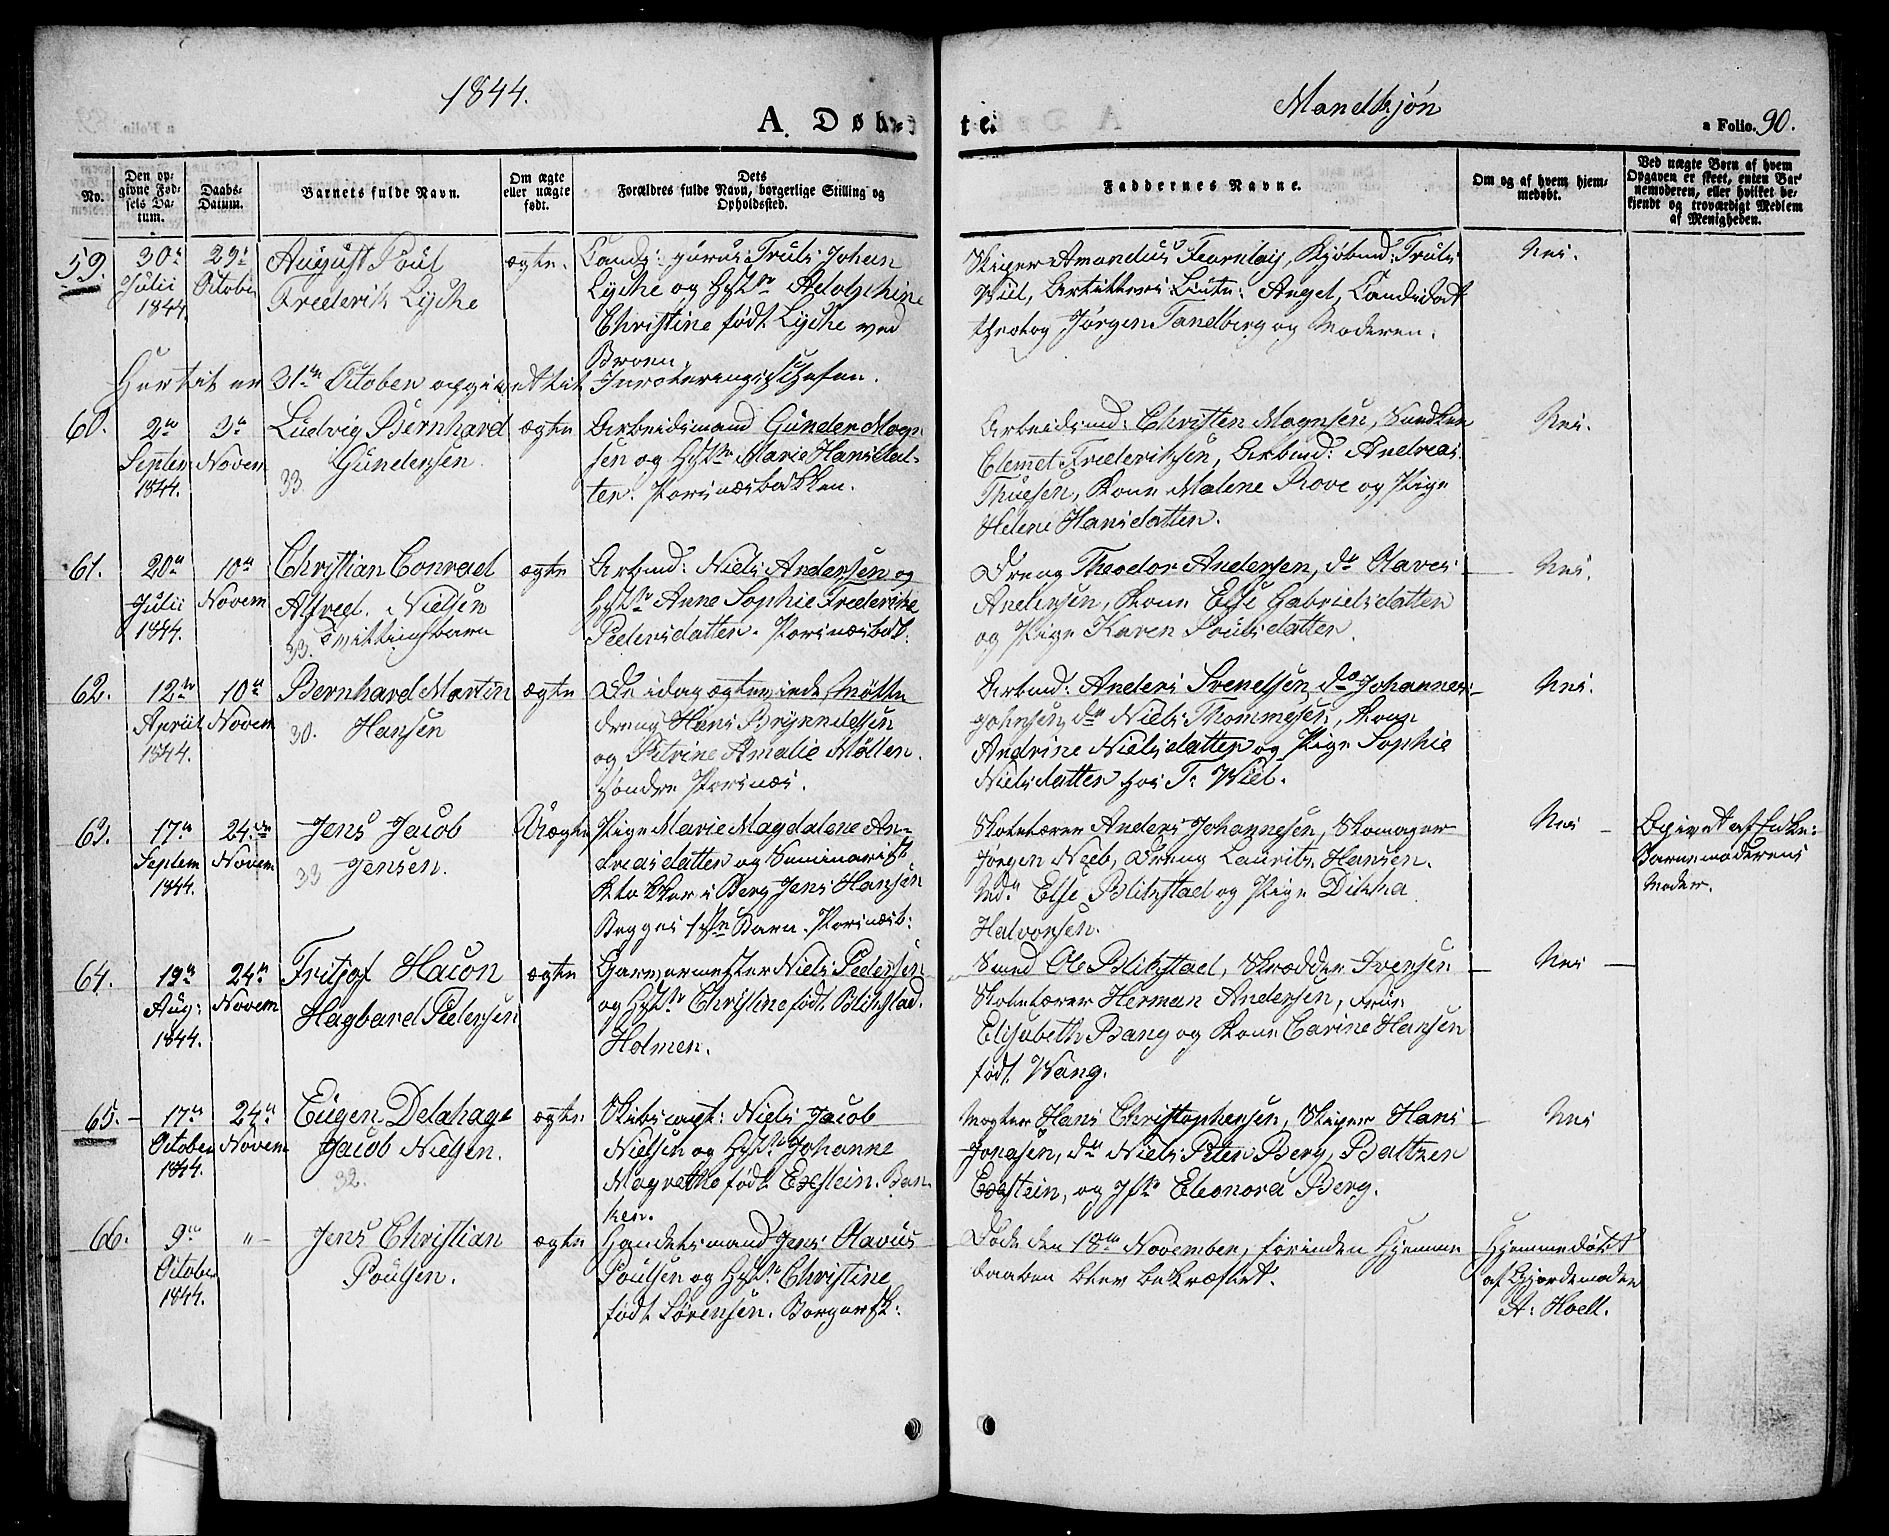 1844.
A. Døbte.
Mandkjøn
a Folio. 90.
No.
Den opgivne Fødsels Datum.
Daabs-Datum.
Barnets fulde Navn.
Om ægte eller uægte født.
Dets Forældres fulde Navn, borgerlige Stilling og Opholdssted.
Faddernes Navne.
Om og af hvem hjemmedøbt.
Ved uægte Børn af hvem Opgaven er skeet, enten Barnemoderen, eller hvilket bekjendt og troværdigt Medlem af Menigheden.
59.
30te Julii 1844
29de Octobe
August Poul
Frederik Lyche
ægte.
Cand: juris Truls Johan
Lyche og Hst. Adolphine
Christine født Lyche ved
Broen.
Skiper Amandus Fearnley, Kjøbmd: Truls
Wiel, Artilleri Lieutn: Angel, Candidat
theolog Jørgen Tandberg og Moderen.
Nei.
Hertil er 31te October opgivet til Inrolleringschefen.
60.
2den Septem 1844.
3die Novem
Ludvig Bernhard
Gundersen.
33
ægte
Arbeidsmand Gunder Mogn-
sen og Hst. Marie Hansdat-
ter. Porsnæsbakken.
Arbeidsmd: Christen Magnsen, Snedker
Clemet Frederiksen, Arbmd: Andreas
Thuesen, Kone Malene Prove og Pige
Helene Hansdatter.
Nei.
61.
20de Julii 1844.
10de Novem
Christian Conrad
Alfred. Nielsen
33. Tvillingbarn
ægte
Arbmd: Niels Andersen og
Hst. Anne Sophie Frederikke
Pedersdatter. Porsnæsbak:
Dreng Theodor Andersen, do Olaves
Andersen, Kone Else Gabrielsdatter
og Pige Karen Poulsdatter.
Nei.
62.
12te April 1844.
10de Novem
Bernhard Martin
30. Hansen
ægte
De idag ægteviede Mølle
dreng Hans Brynnildsen
og Petrine Amalie Møller.
Søndre Porsnæs.
Arbmd: Anders Svendsen, do Johannes
Johnsen, do Niels Thommesen, Kone
Andrine Nielsdatter og Pige Sophie
Nielsdatter hos T: Wiel.
Nei.
63.
17de Septem 1844.
24de Novem
Jens Jacob
33 Jensen.
Uægte
Pige Marie Magdalene An-
dreasdatter og Seminarist
Klokker i Berg Jens Hansen
Begges 1ste Barn. Porsnæsb:
Skolelærer Anders Johannesen, Skomager
Jørgen Neeb, Dreng Laurits Hansen.
Md. Else Blikstad og Pige Dikka
Halvorsen.
Nei
Opgivet af Enke:
Barnemoderens
Moder.
64.
19de Aug: 1844.
24de Novem
Fritjof Hacon
Hagbard Pedersen
ægte
Garvermester Niels Pedersen
og Hst. Christine født Blikstad.
Holmen.
Smed Ole Blikstad, Skrædder Iversen
Skolelærer Herman Andersen, Frue
Elisabeth Bang og Kone Carine Hansen
født Wang.
Nei
65.
17de October 1844.
24de Novem
Eugen Delahage
Jacob Nielsen.
32.
ægte
Skibscapt: Niels Jacob
Nielsen og Hst. Johanne
Magrethe født Exstein. Ban-
ken.
Mægler Hans Christophersen, Skiper Hans
Jonasen, do Niels Peter Berg, Baltzer
Exstein, og Jfr. Eleonora Berg.
Nei
66.
9de October 1844.
"
Jens Christian
Poulsen.
ægte
Handelsmand Jens Olavus
Poulsen og Hst. Christine
født Sørensen. Borgersk:
Døde den 18de November, forinden Hjemme
daaben blev bekræftet.
Hjemmedøbt
af Gjordemoder
A: Hoell.